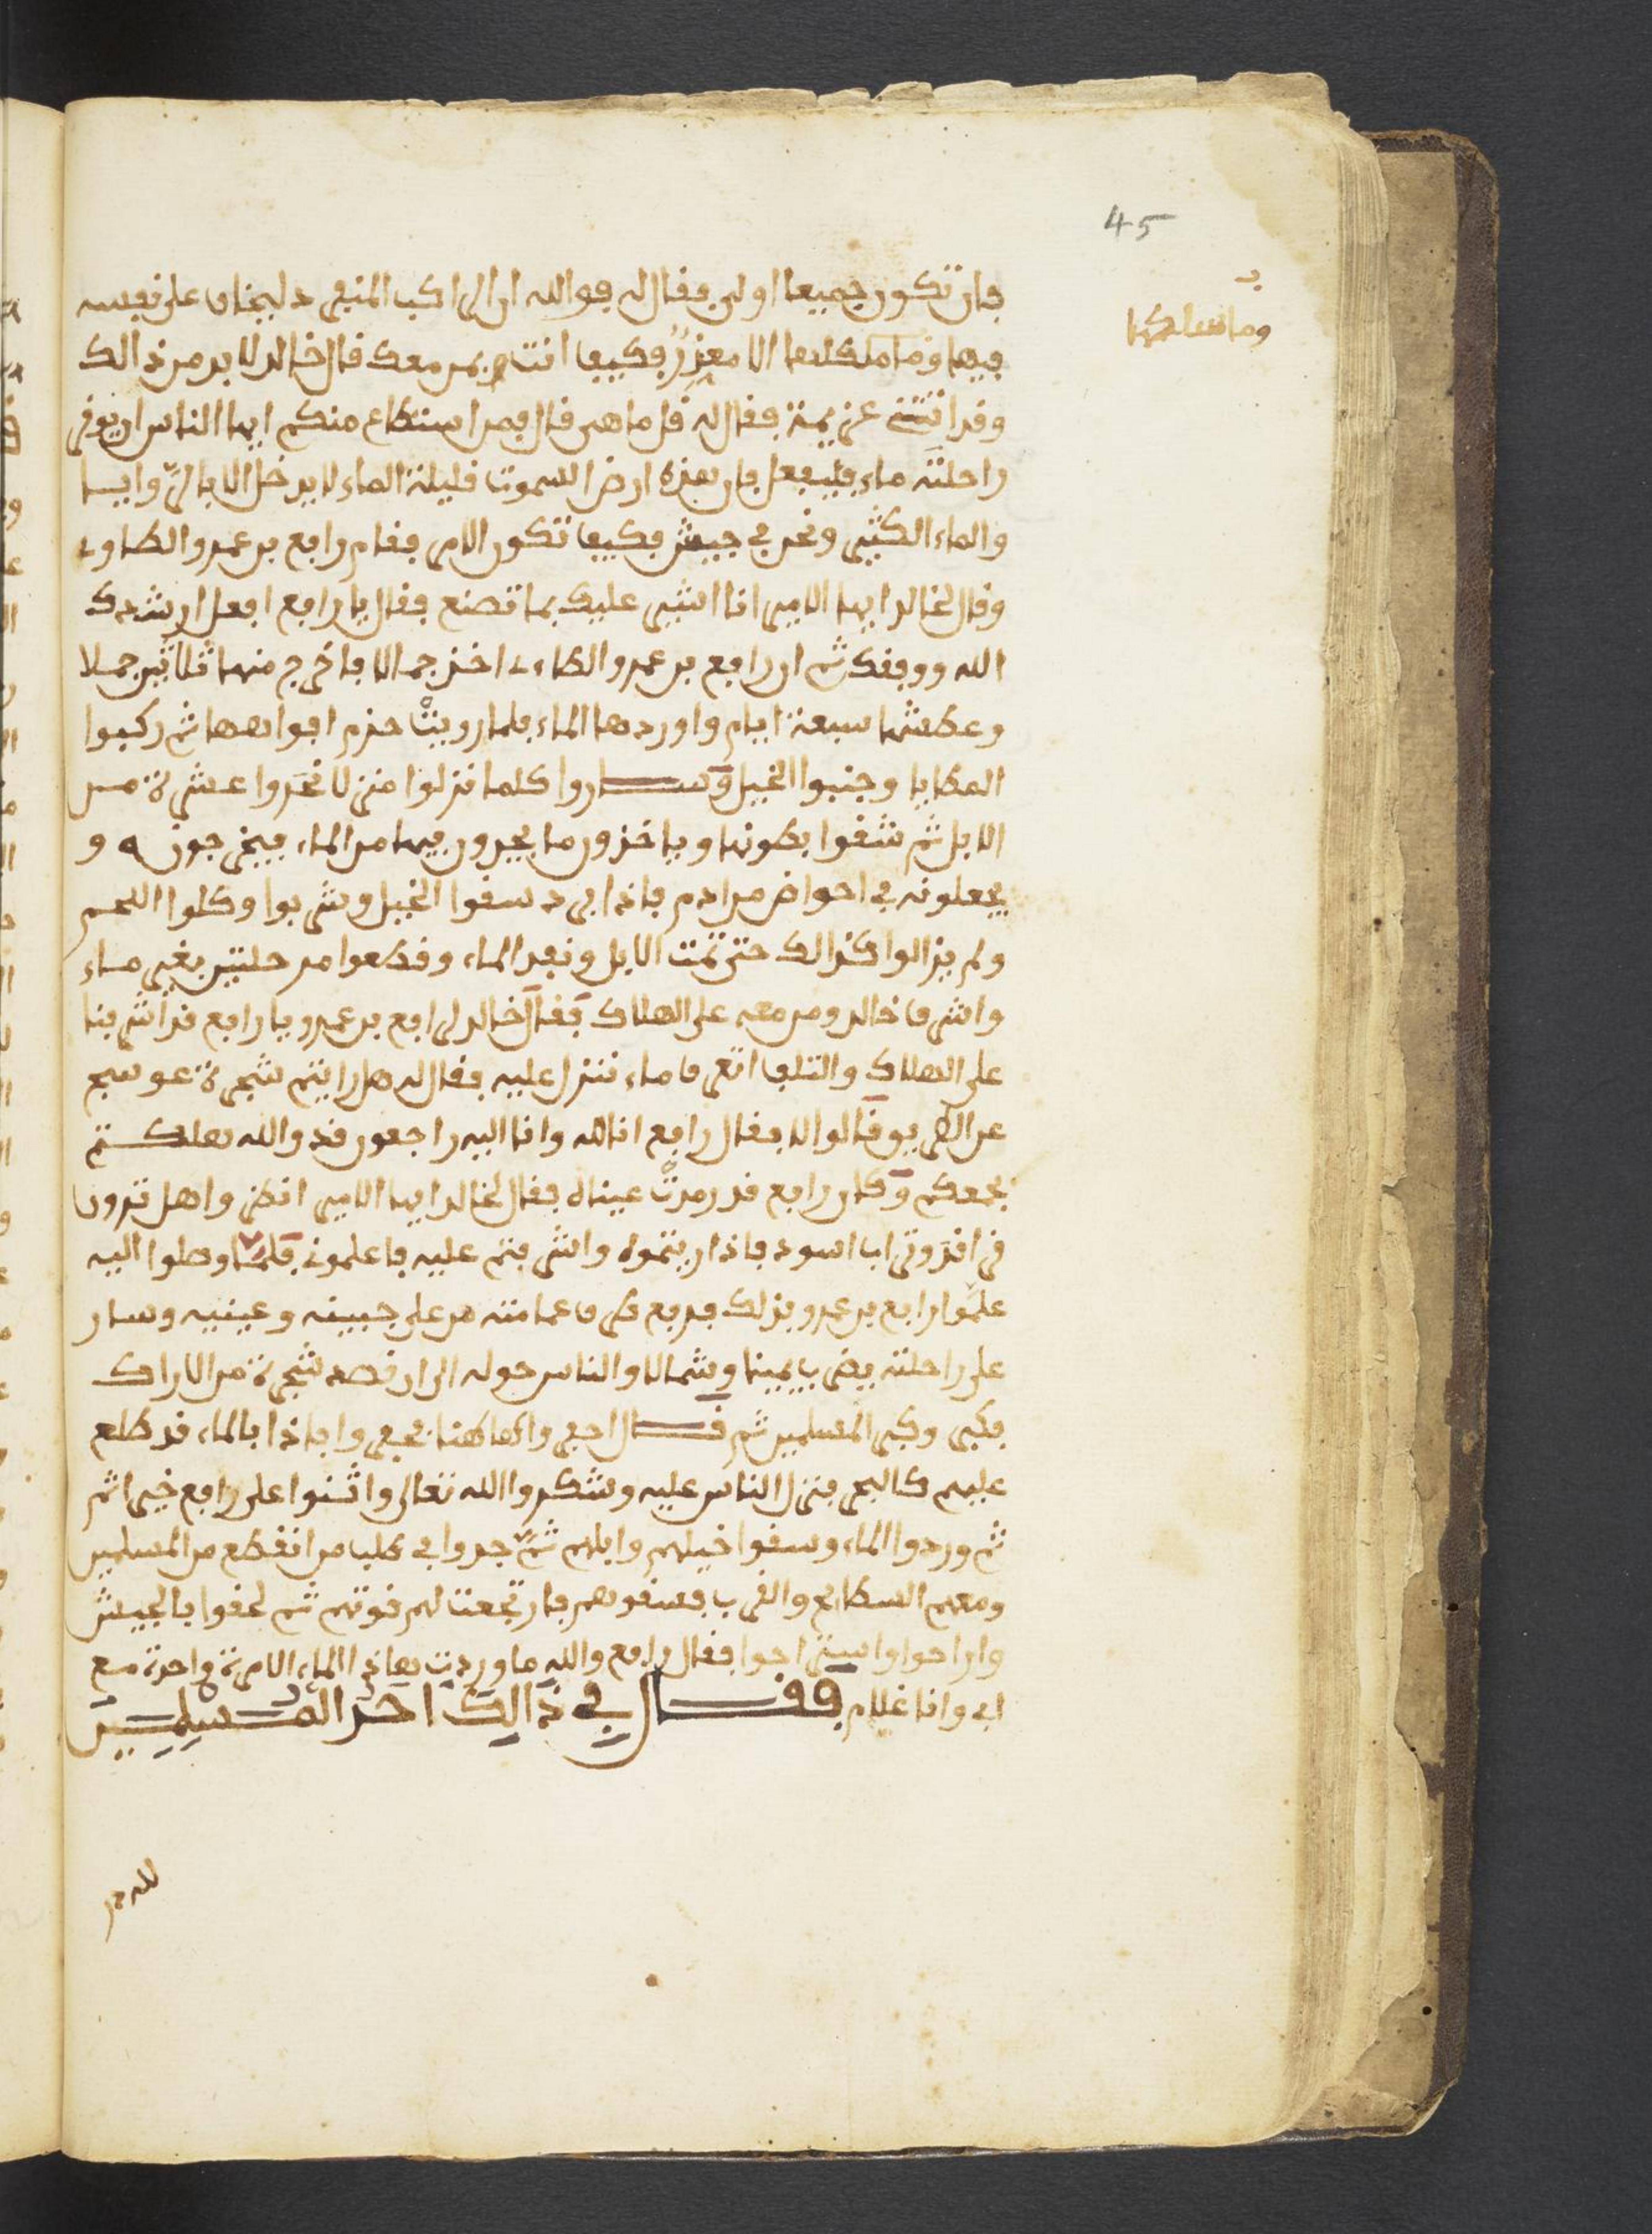 45
وما سلكها
فان تكون جميعا اولى فقال له فوالله ان الراكب المنفرد ليخاف على نفسه
فيها وما سلكها الا مغرر فكيف انت بمن معك قال خالد لا بد من ذالك
وقد اتتني عزيمة فقال له قل ما هى قال فمن استطاع منكم ايها الناس ان يوقر
راحلته ماء فليفعل فان هذه ارض السموت قليلة الماء لا يدخل الابال وايسا
والماء الكثير ونحن في جيش فكيف تكون الامر فقام رافع بن عمرو الطاوى
وقال لخالد ايها الامير انا اشير عليك بما تصنع فقال يا رافع افعل ارشدك
الله ووفقك ثم ان رافع بن عمرو الطاءى اخذ جمالا فاخرج منها ثلاثين جملا
وعطشها سبعة ايام واوردها الماء فلما رويت حزم افواهها ثم ركبوا
المطايا وجنبوا الخيل وساروا كلما نزلوا منزلا نحروا عشرة من
الابل ثم شقوا بطونها وياخذون ما يجدون فيها من الماء فيخرجونه و
يجعلونه في احواض من ادم فاذا برد سقوا الخيل وشربوا وكلوا اللحم
ولم يزالوا كذالك حتى تمت الابل ونفد الماء وقطعوا مرحلتين بغير ماء
واشرف خالد ومن معه على الهلاك فقال خالد لرافع بن عمرو يا رافع قد اشرفنا
على الهلاك والتلف اتعرف ماء ننزل عليه فقال له هل رايتم شجرة عوسج
عن الطريق قالوا لا فقال رافع انا لله وانا اليه راجعون قد والله هلكتم
بجمعكم وكان رافع قد رمدت عيناه فقال لخالد ايها الامير انظروا هل ترون
قراقر وتراب اسود فاذا ريتموه واشرفتم عليه فاعلموني فلما وصلوا اليه
علموا رافع بن عمرو بذلك فرفع طرف عمامته من على جبينه وعينيه وسار
على راحلته يضرب يمينا وشمالا والناس حوله الى ان قصد شجرة من الاراك
فكبر وكبر المسلمين ثم قال احفروا هاهنا فحفروا فاذا بالماء قد طلع
عليهم كالبحر فنزل الناس عليه وشكروا الله تعالى واثنوا على رافع خيرا ثم
ثم وردوا الماء وسقوا خيلهم وابلهم ثم جدوا في طلب من انقطع من المسلمين
ومعهم السطائح والقرب فسقوهم فارتجعت لهم قوتهم ثم لحقوا بالجيش
واراحوا واستراحوا فقال رافع والله ما وردت هاذا الماء الا مرة واحدة مع
ابى وانا غلام فقال في ذالك احد المسلمين
لله در